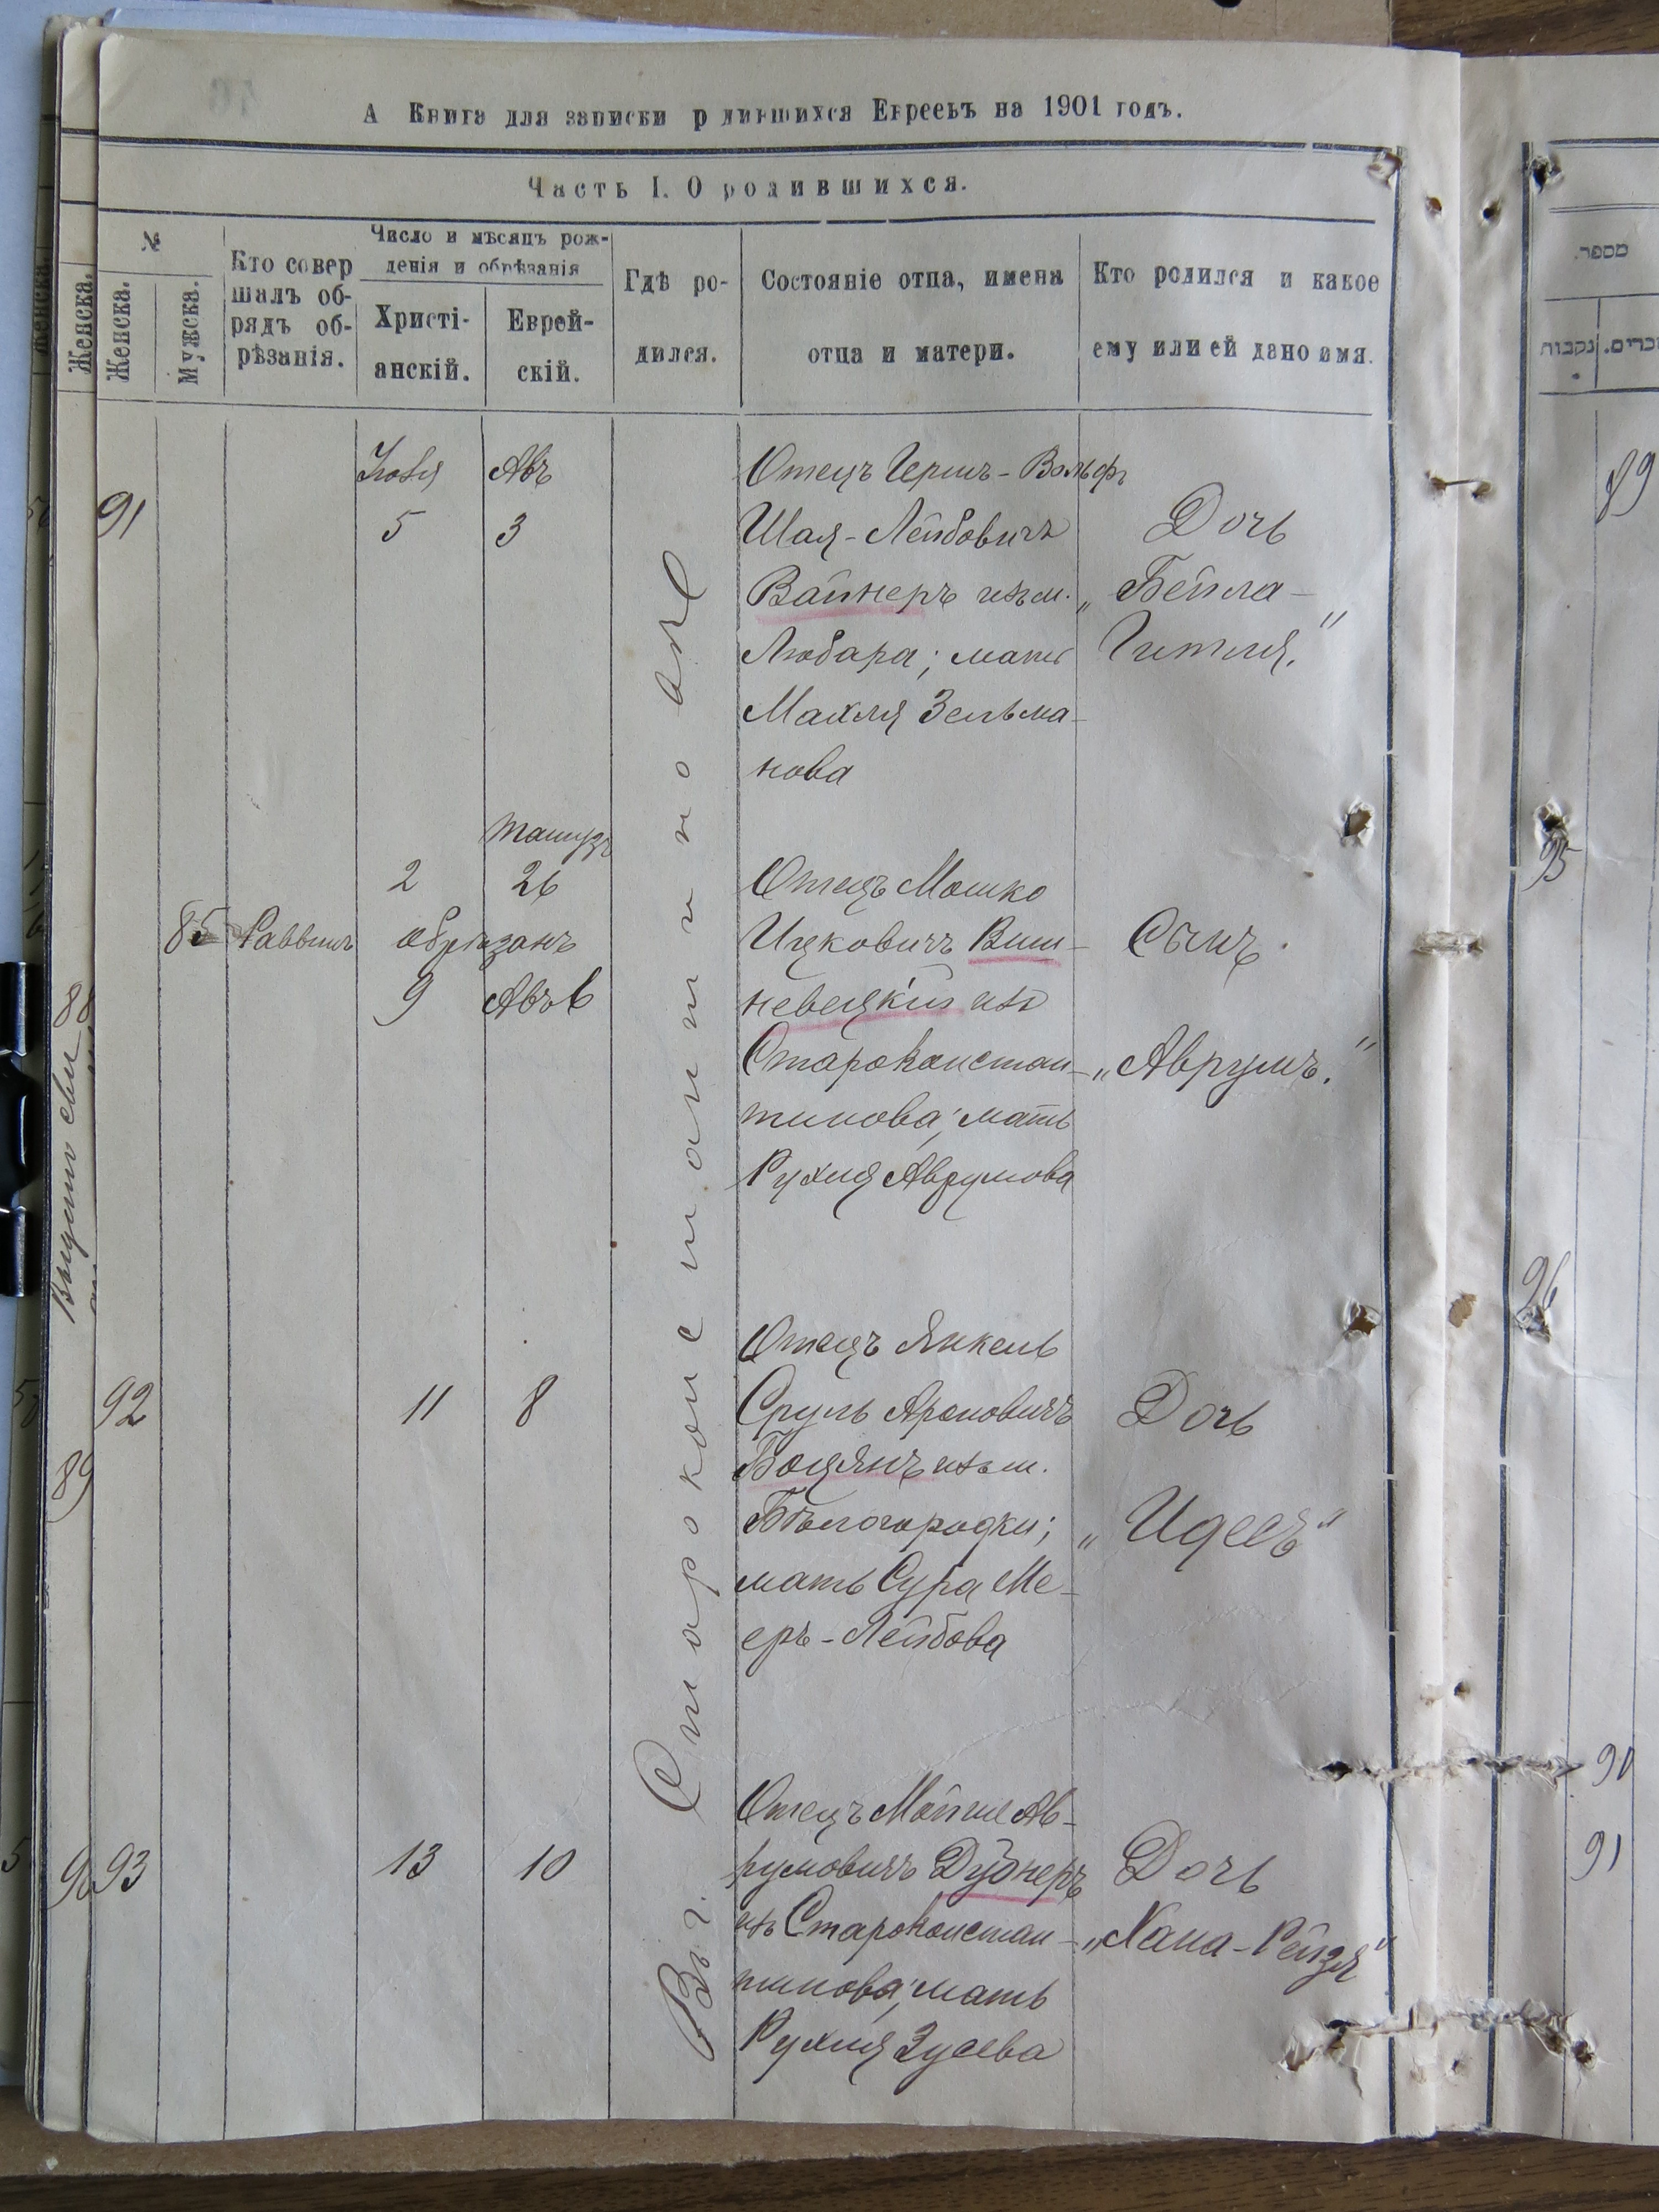 А Книга для записки р дившихся Евреевъ на 1901 годъ.
Часть I. О родившихся.
№
Женска.
Мужска.
Кто совер
шалъ об-
рядъ об-
рѣзанія.
Число и мѣсяцъ рож-
денія и обрѣзанія
Христі-
анскій.
Еврей-
скій.
Гдѣ ро-
дился.
Состояніе отца, имена
отца и матери.
Кто родился и какое
ему или ей дано имя.
Женска.
מספר.
נקבות
Въ г. Старокон с тантиновѣ
Авъ
91
5
3
Отецъ Герш-Вольфъ
Шая-Лейбовичъ
Вайнеръ изъ м.
Любара; мать
Махля Зельма-
нова
Дочь
„Бейла-
Гитля."
Тамузъ
2
26
85
Раввинъ
обрѣзанъ
9
Авъ 6
Отецъ Мошко
Ицковичъ Виш-
невецкій изъ
Староконстан-
тинова; мать
Рухля Аврумова
Сынъ.
„Аврумъ."
92
11
8
Отецъ Янкель
Сруль Ароновичъ
Боцянъ изъ м.
Бѣлогородки;
мать Сура Ме-
еръ-Лейбова
Дочь
„Идесъ"
93
13
10
Отецъ Мойше Ав-
румовичъ Дубнеръ
изъ Староконстан-
тинова; мать
Рухля Зусева
Дочь
„Хана-Рейзя"
88
89
89
95
96
90
91